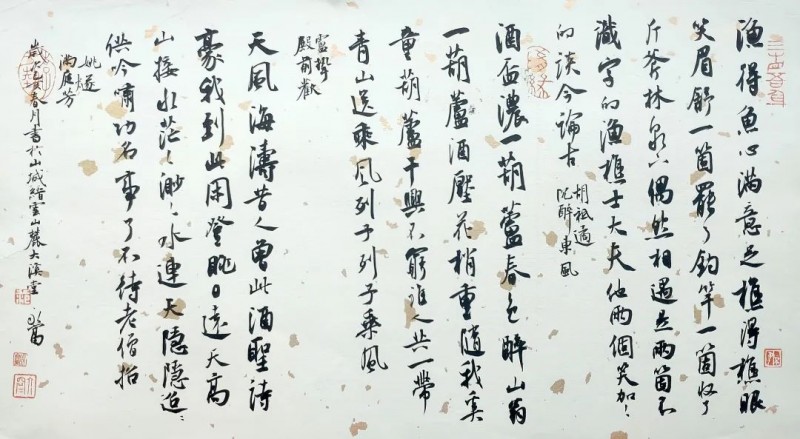 漁得魚心滿意足樵得樵眼
笑眉舒一箇罷了釣竿一箇收了
斤斧林泉下偶然相遇是兩箇不
識字的漁樵士大夫他兩個笑加々
的談今論古
胡祗遹
沉醉東風
酒盃濃一葫蘆春色醉山翁
一葫蘆酒壓花梢重隨我奚
童葫蘆干興不窮誰人共一帶
青山送乘風列子列子乘風
盧摯
殿前歡
天風海濤昔人曾此酒聖詩
豪我到此閑登眺日遠天高
山接水茫々渺々水連天隱隱迢々
供吟嘯功名事了不待老僧招
姚燧
滿庭芳
歲次乙亥春月書於山城縉雲山麓大溪堂